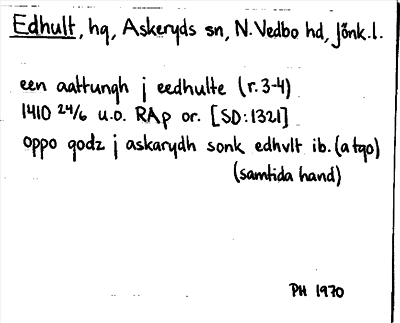 Edhult, hg, Askeryds sn, N. Vedbo hd, Jönk. l.
een aattungh j eedhulte (r. 3-4)
1410 24/6 u.o. RAp or. [SD: 1321]
oppo godz j askarydh sonk edhvlt ib. (a tgo)
(samtida hand)
PH 1970